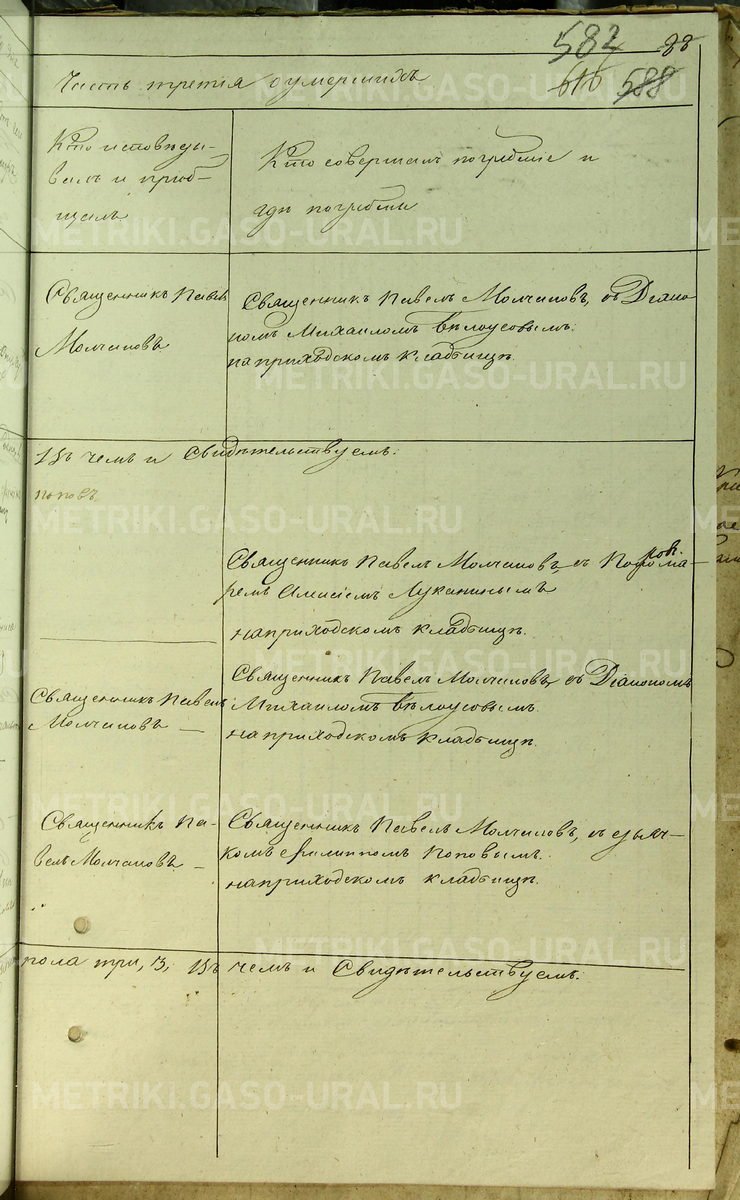 582 88
Часть третія о умершихъ 616 588
Кто исповѣды-
валъ и пріоб-
щалъ
Кто совершалъ погребеніе и
гдѣ погребены
Священникъ Павелъ
Молчановъ
Священникъ Павелъ Молчановъ, съ Діако-
номъ Михаиломъ Бѣлоусовымъ.
на приходскомъ кладбищѣ.
Въ чемъ и Свидѣтельствуемъ:
поповъ
Священникъ Павелъ Молчановъ, съ Понома-
ремъ Алексіемъ Луканинымъ
на приходскомъ кладбищѣ.
Священникъ Павелъ
Молчановъ —
Священникъ Павелъ Молчановъ, съ Діакономъ
Михаиломъ Бѣлоусовымъ.
на приходскомъ кладбищѣ.
Священникъ Па-
велъ Молчановъ —
Священникъ Павелъ Молчановъ, съ дьяч-
комъ Филиппомъ Поповымъ.
на приходскомъ кладбищѣ.
пола три, 3, Въ чемъ и Свидѣтельствуемъ.
METRIKI.GASO-URAL.RU